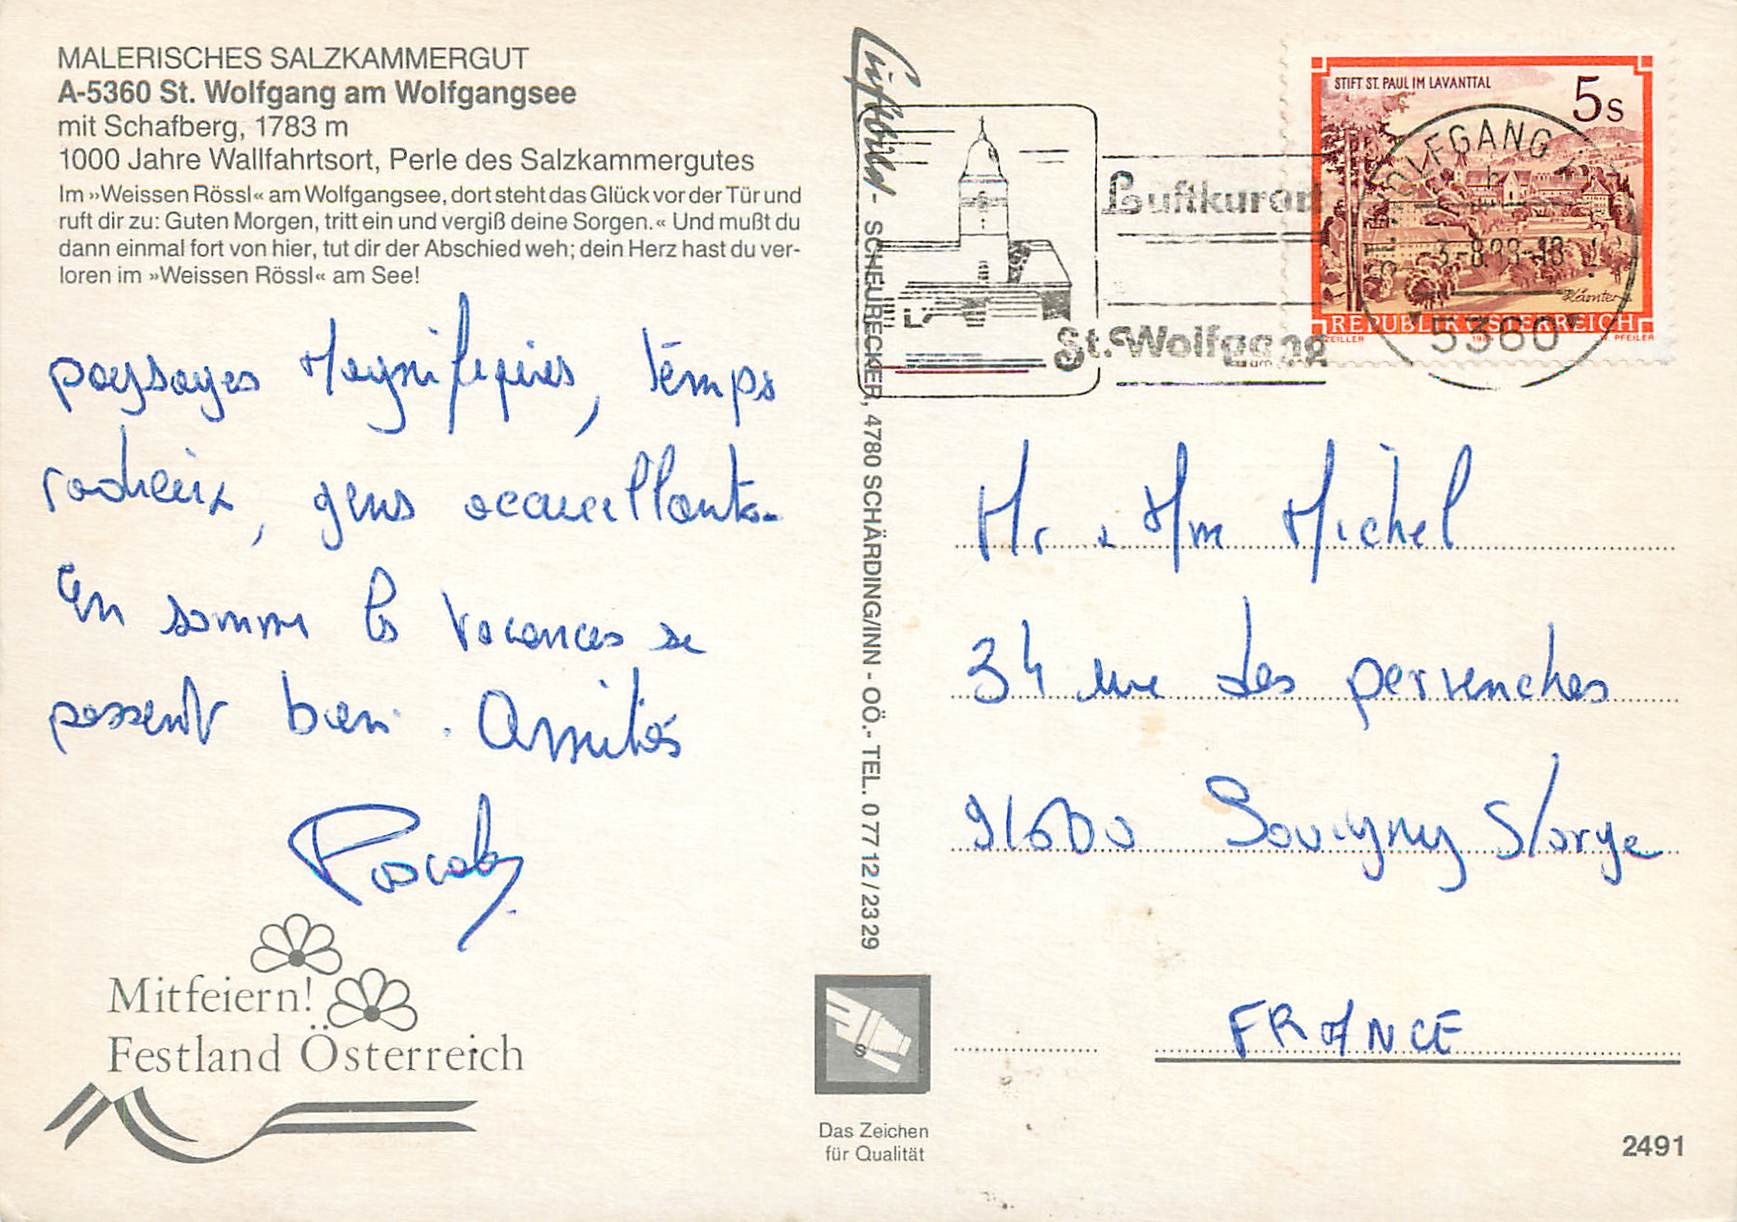 MALERISCHES SALZKAMMERGUT
A-5360 St. Wolfgang am Wolfgangsee
mit Schafberg, 1783 m
1000 Jahre Wallfahrtsort, Perle des Salzkammergutes
Im »Weissen Rössl« am Wolfgangsee, dort steht das Glück vor der Tür und
ruft dir zu: Guten Morgen, tritt ein und vergiß deine Sorgen.« Und mußt du
dann einmal fort von hier, tut dir der Abschied weh; dein Herz hast du ver-
loren im »Weissen Rössl« am See!
paysages Magnifiques, temps
radieux, gens accueillants.
En somme les vacances se
passent bien. Amitiés
Pascal
Mitfeiern!
Festland Österreich
Luftbild - SCHEURECKER, 4780 SCHÄRDING/INN - OÖ.- TEL. 0 77 12 / 23 29
Das Zeichen
für Qualität
Luftkurort
St. Wolfgang
STIFT ST. PAUL IM LAVANTTAL
5s
Kärnten
REPUBLIK ÖSTERREICH
ZEILLER
W. PFEILER
WOLFGANG
5360
Mr & Mm Michel
34 rue des pervenches
91600 Savigny S/orge
FRANCE
2491